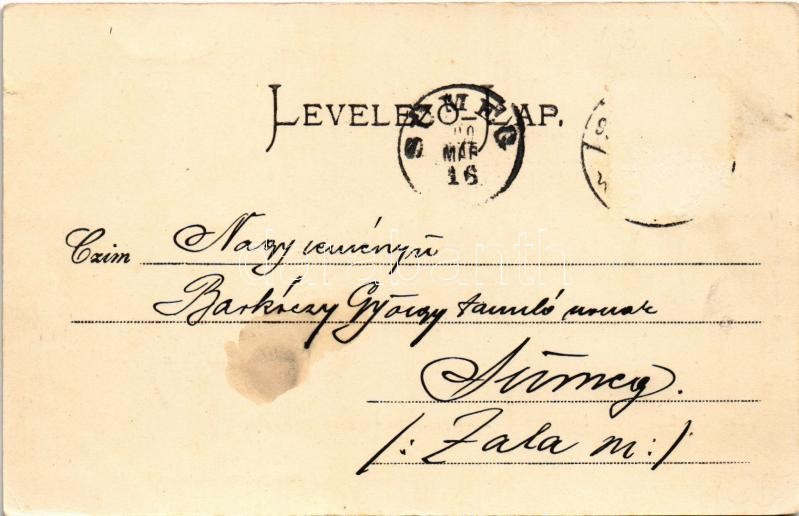 LEVELEZŐ-LAP.
SÜMEG
MAR
16
Czim Nagyreményű
Barkóczy György tanuló urnak
Sümeg.
/: Zala m:/
darabanth